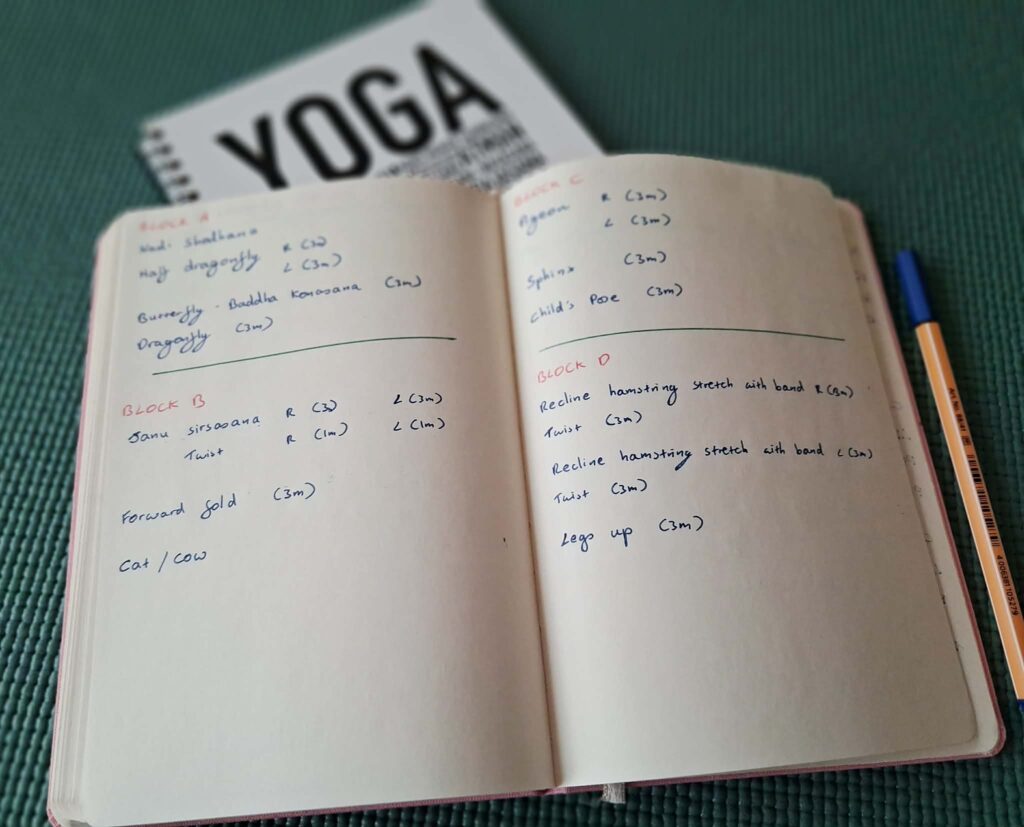 YOGA
BLOCK A
Nadi Shodhana
Half dragonfly R (3m)
L (3m)
Butterfly - Baddha Konasana (3m)
Dragonfly (3m)
BLOCK B
Janu sirsasana R (3m) L (3m)
Twist R (1m) L (1m)
Forward fold (3m)
Cat / Cow
BLOCK C
R (3m)
L (3m)
Sphinx (3m)
Child's Pose (3m)
BLOCK D
Recline hamstring stretch with band R (3m)
Twist (3m)
Recline hamstring stretch with band L (3m)
Twist (3m)
Legs up (3m)